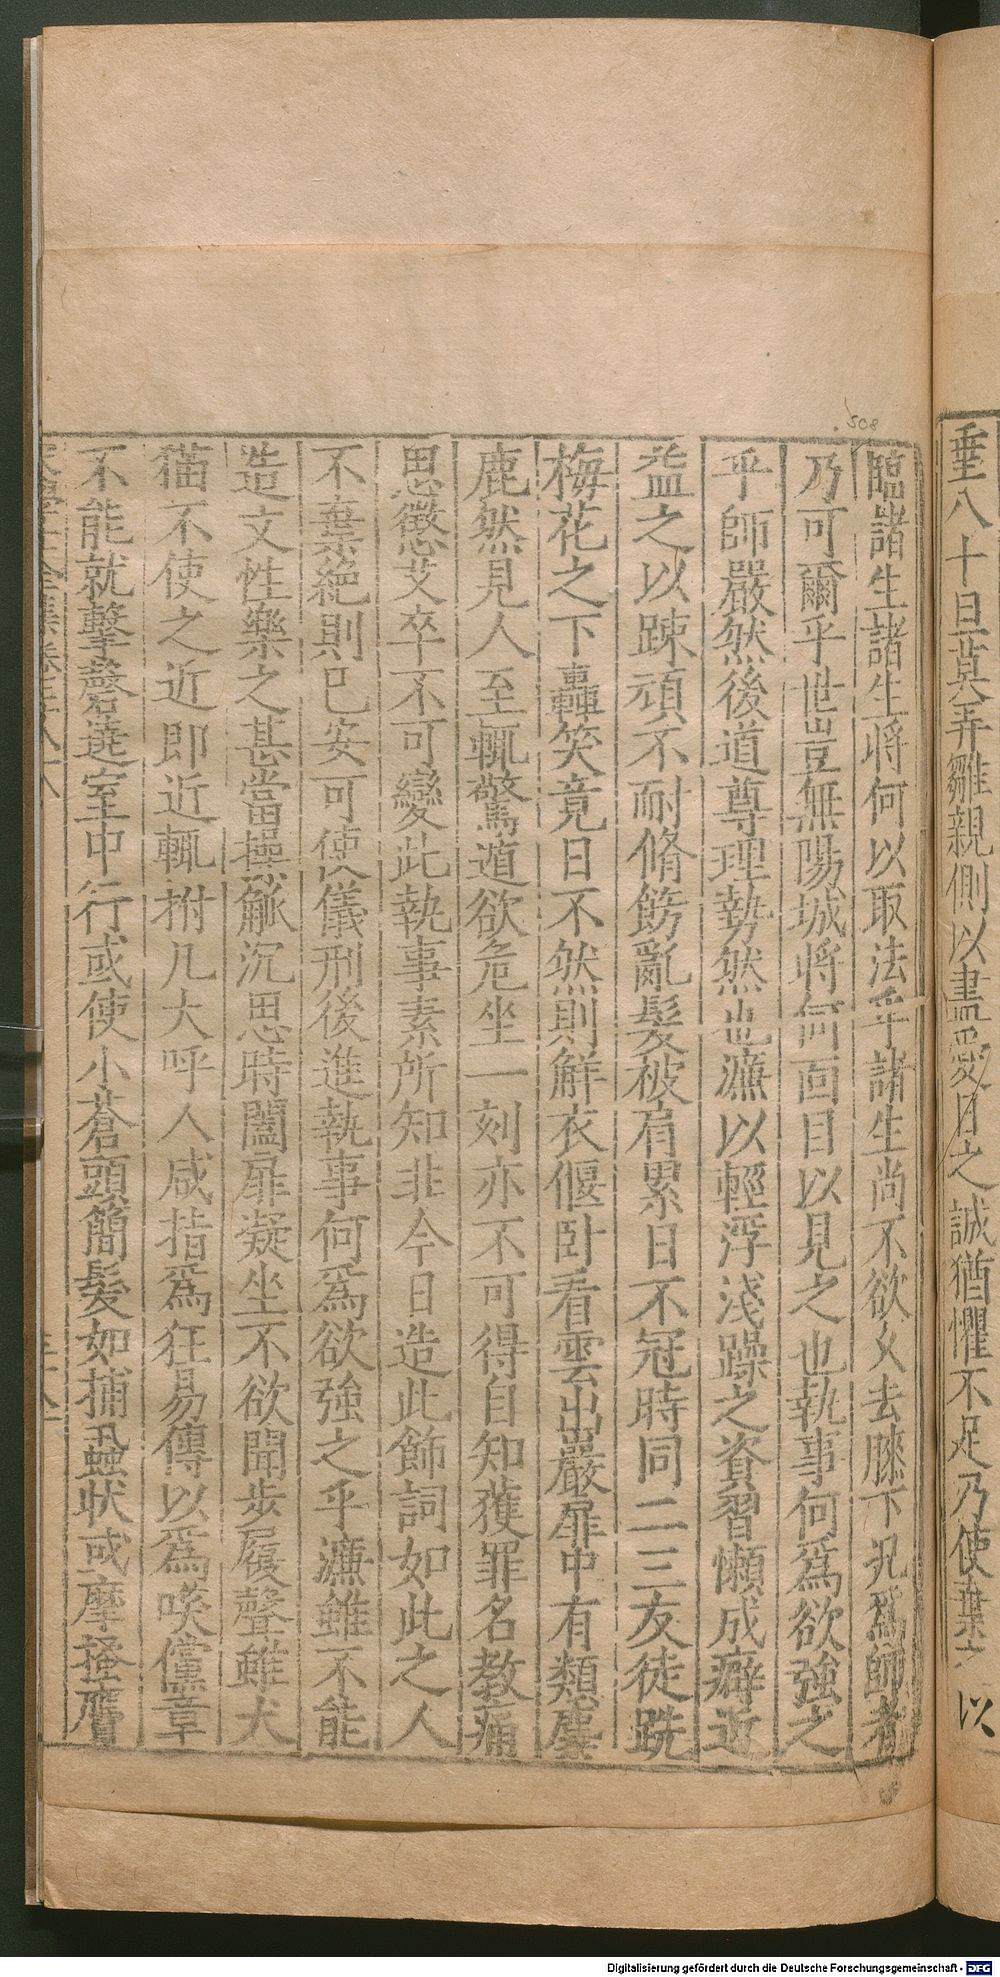 垂八十日冀弄雛親側以盡愛日之誠猶懼不足乃使棄之以
臨諸生諸生將何以取法乎諸生尚不欲久去膝下況爲師者
乃可爾乎世豈無陽城將何面目以見之也執事何爲欲強之
乎師嚴然後道尊理勢然也濂以輕浮淺躁之資習懶成癖近
益之以踈頑不耐脩飭亂髮被肩累日不冠時同二三友徒跣
梅花之下轟笑竟日不然則鮮衣偃卧看雲出巖扉中有類麋
鹿然見人至輒驚遁欲危坐一刻亦不可得自知獲罪名教痛
思懲艾卒不可變此執事素所知非今日造此飾詞如此之人
不棄絶則已安可使儀刑後進執事何爲欲強之乎濂雖不能
造文性樂之甚當操觚沉思時闔扉凝坐不欲聞步履聲雖犬
猫不使之近即近輒拊几大呼人咸指爲狂易傳以爲𠺕儻章
不能就擊磬遶室中行或使小蒼頭簡髮如捕蝨狀或摩搔膺